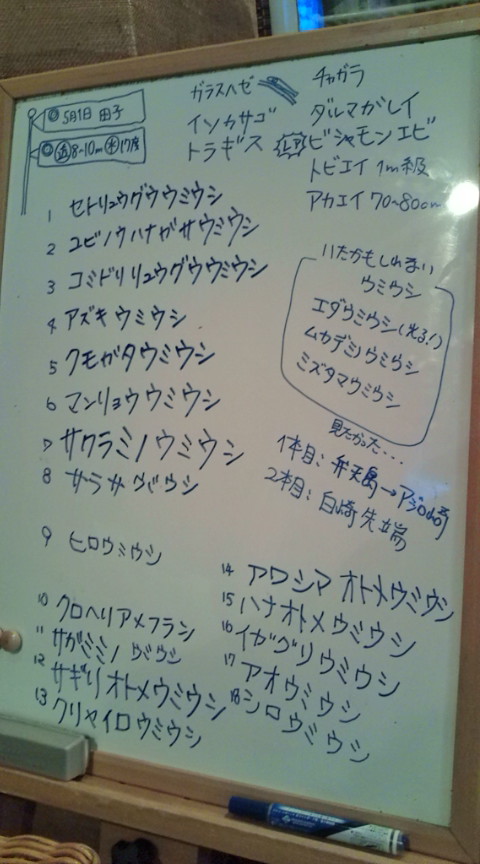 5月1日 田子
透 8-10m 水 17度
ガラスハゼ
イソカサゴ
トラギス
チャガラ
ダルマガレイ
ビシャモンエビ
トビエイ 1m級
アカエイ 70~80cm
1 セトリュウグウウミウシ
2 ユビノウハナガサウミウシ
3 コミドリリュウグウウミウシ
4 アズキウミウシ
5 クモガタウミウシ
6 マンリョウウミウシ
7 サクラミノウミウシ
8 サラサウミウシ
9 ヒロウミウシ
10 クロヘリアメフラシ
11 サガミミノウミウシ
12 サギリオトメウミウシ
13 クリヤイロウミウシ
14 アワシマオトメウミウシ
15 ハナオトメウミウシ
16 イガグリウミウシ
17 アオウミウシ
18 シロウミウシ
いたかもしれない
ウミウシ
エダウミウシ(光る!)
ムカデミノウミウシ
ミズタマウミウシ
見たかった...
1本目: 弁天島→アジロ崎
2本目: 白崎先端